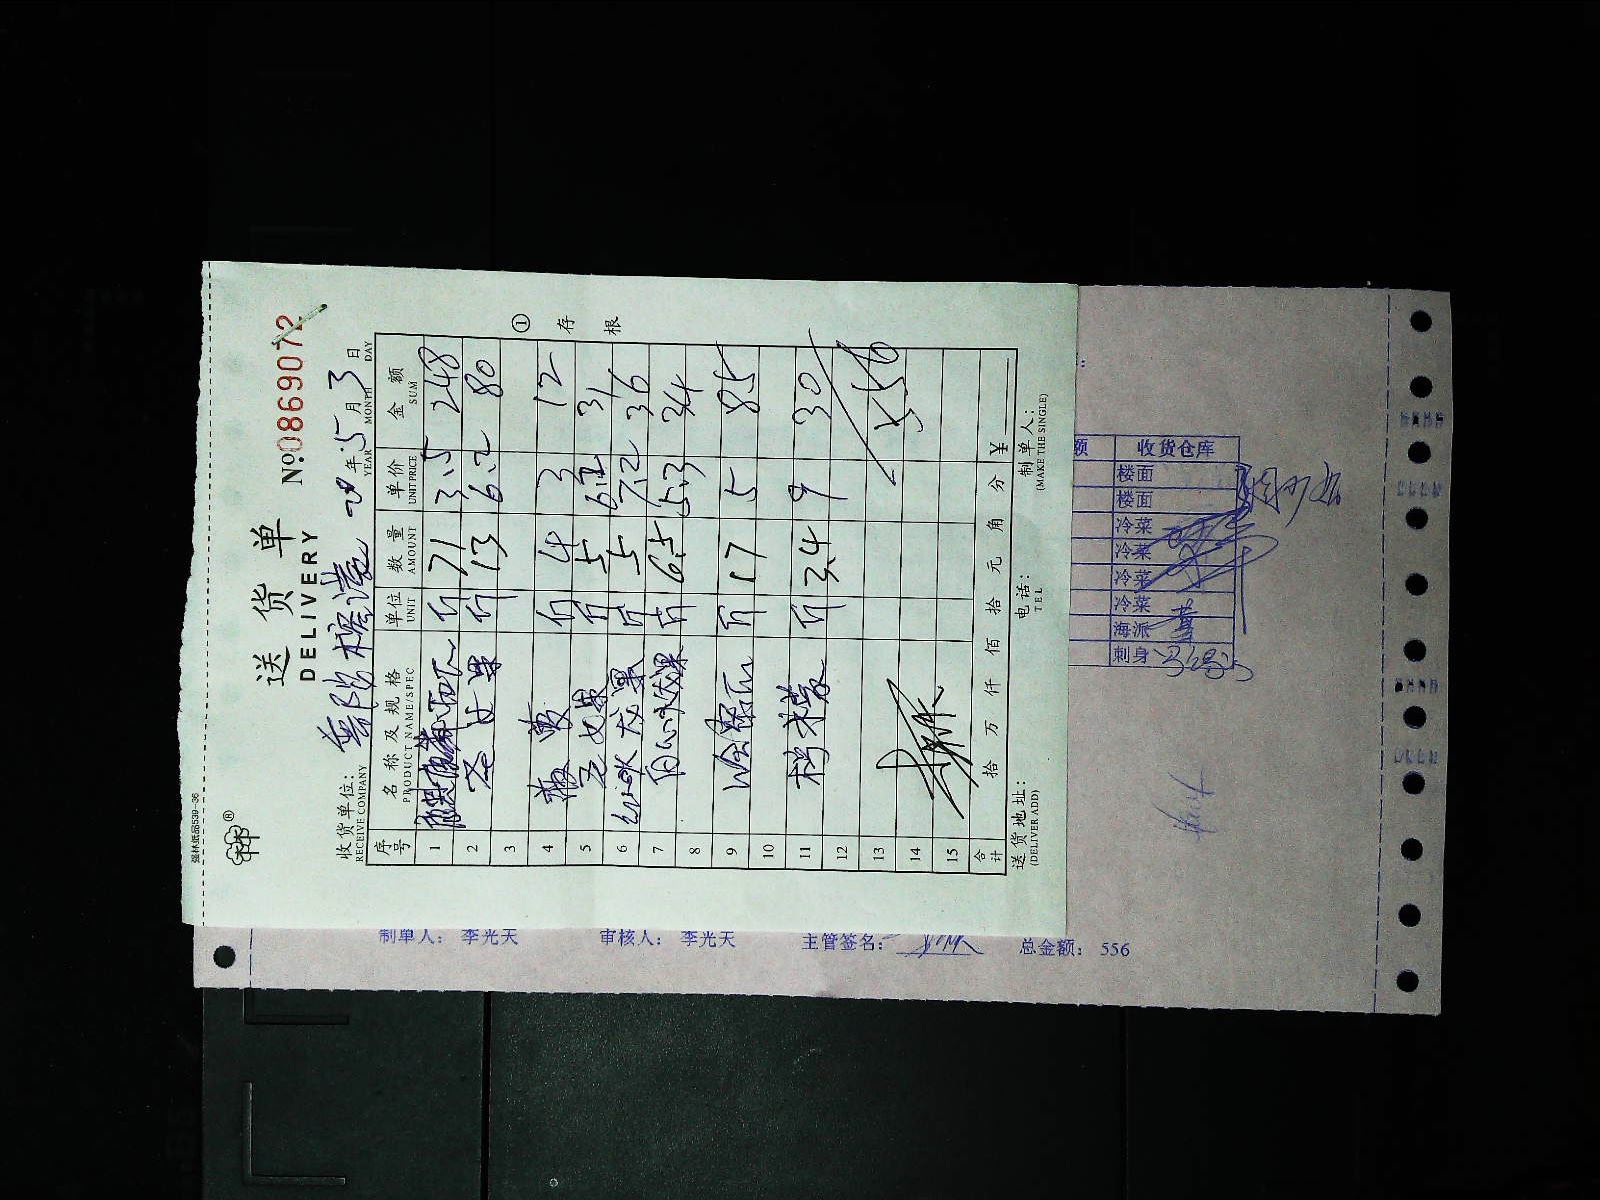 强林纸品539-36
送货单
DELIVERY
№0869072
收货单位：
RECEIVE COMPANY
年 5 月 3 日
YEAR MONTH DAY
序号 名称及规格 单位 数量 单价 金额
PRODUCT NAME/SPEC UNIT AMOUNT UNIT PRICE SUM
1 斤 71 3.5 248
2 圣女果 斤 13 6.2 80
3
4 菠萝 斤 4 3 12
5 圣女果 斤 5 6.2 31
6 红心火龙果 斤 5 7.2 36
7 白心火龙果 斤 6.5 5.3 34
8
9 斤 17 5 85
10
11 柠檬 斤 3.4 9 30
12
13 ¥556
14
15
合计 拾 万 仟 佰 拾 元 角 分 ¥
送货地址： 电话： 制单人：
(DELIVER ADD) TEL (MAKE THE SINGLE)
①存根
额 收货仓库
楼面
楼面
冷菜
冷菜
冷菜
冷菜
海派
刺身
制单人： 李光天 审核人： 李光天 主管签名： 总金额： 556